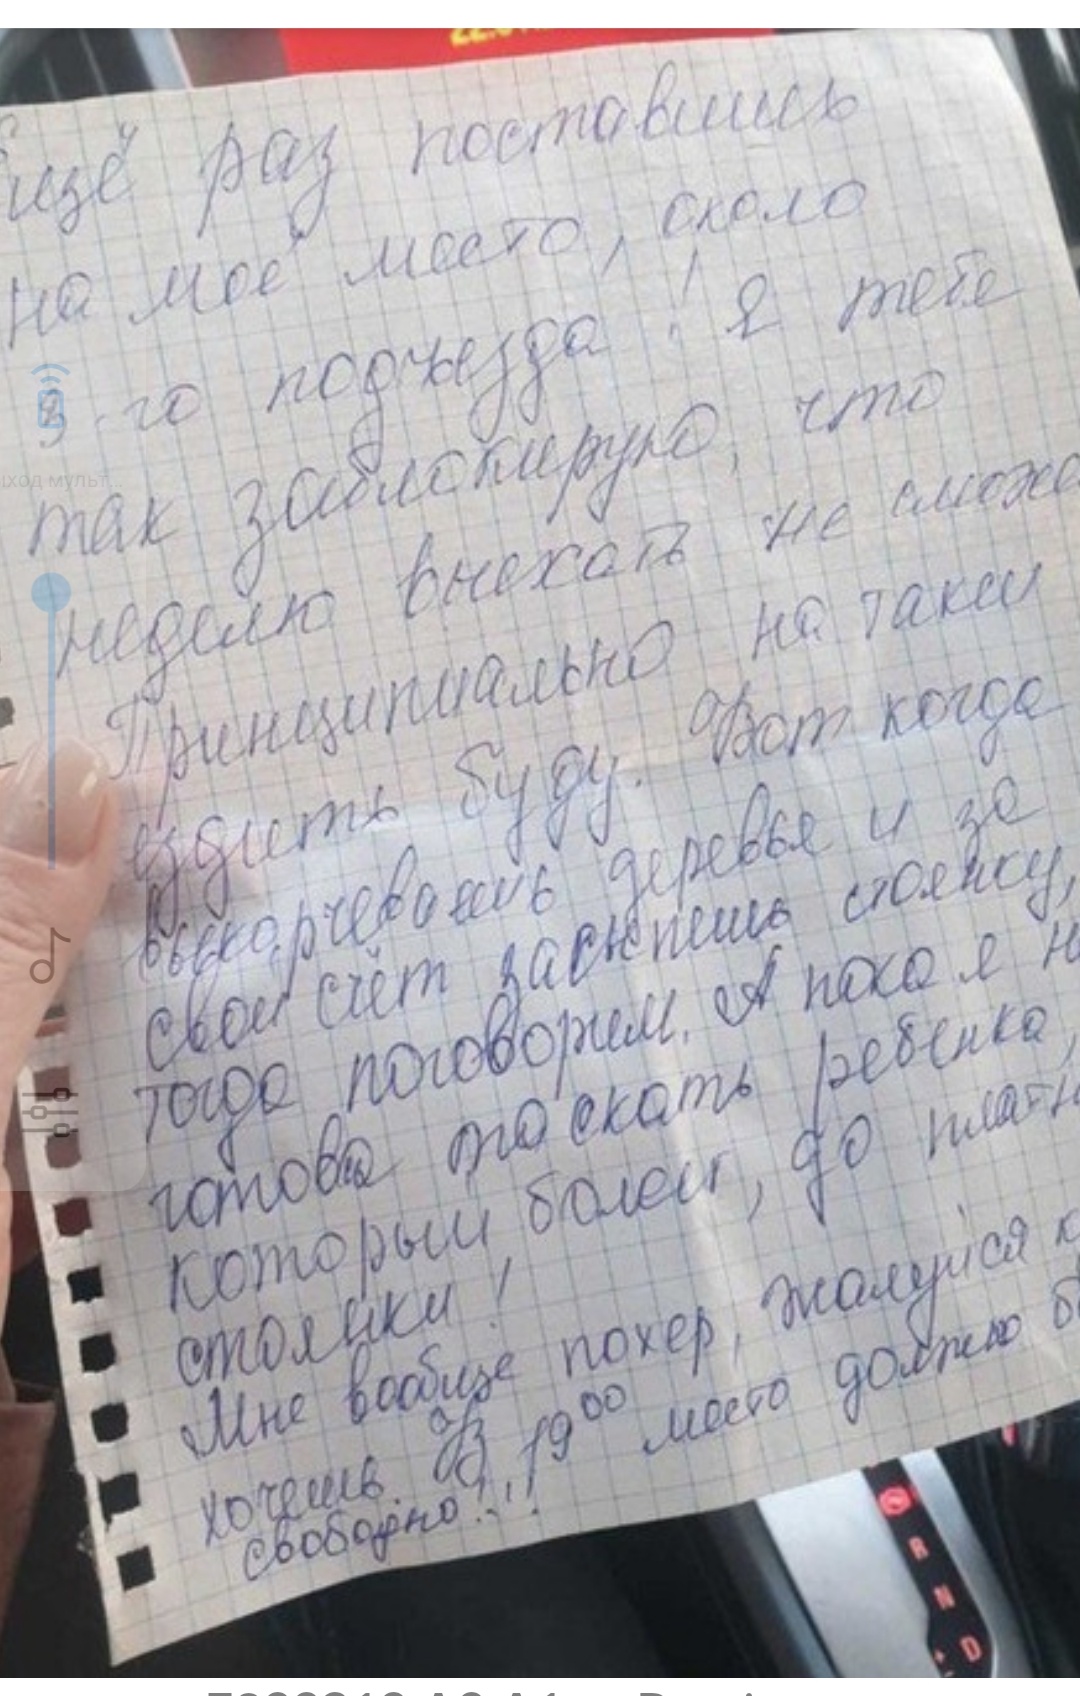 22.0
Ещё раз поставишь
на моё место, около
3-го подъезда! Я тебе
ыход мульт...
так заблокирую, что
неделю выехать не сможе
Принципиально на такси
ездить буду. Вот когда
выкарчеваешь деревья и за
свой счёт засыпешь стоянку,
тогда поговорим. А пока я н
готова таскать ребенка,
который болеет, до платн
стоянки!
Мне вообще похер, жалуйся к
хочешь. В 19⁰⁰ место должно б
свободно!!!
R
N
D